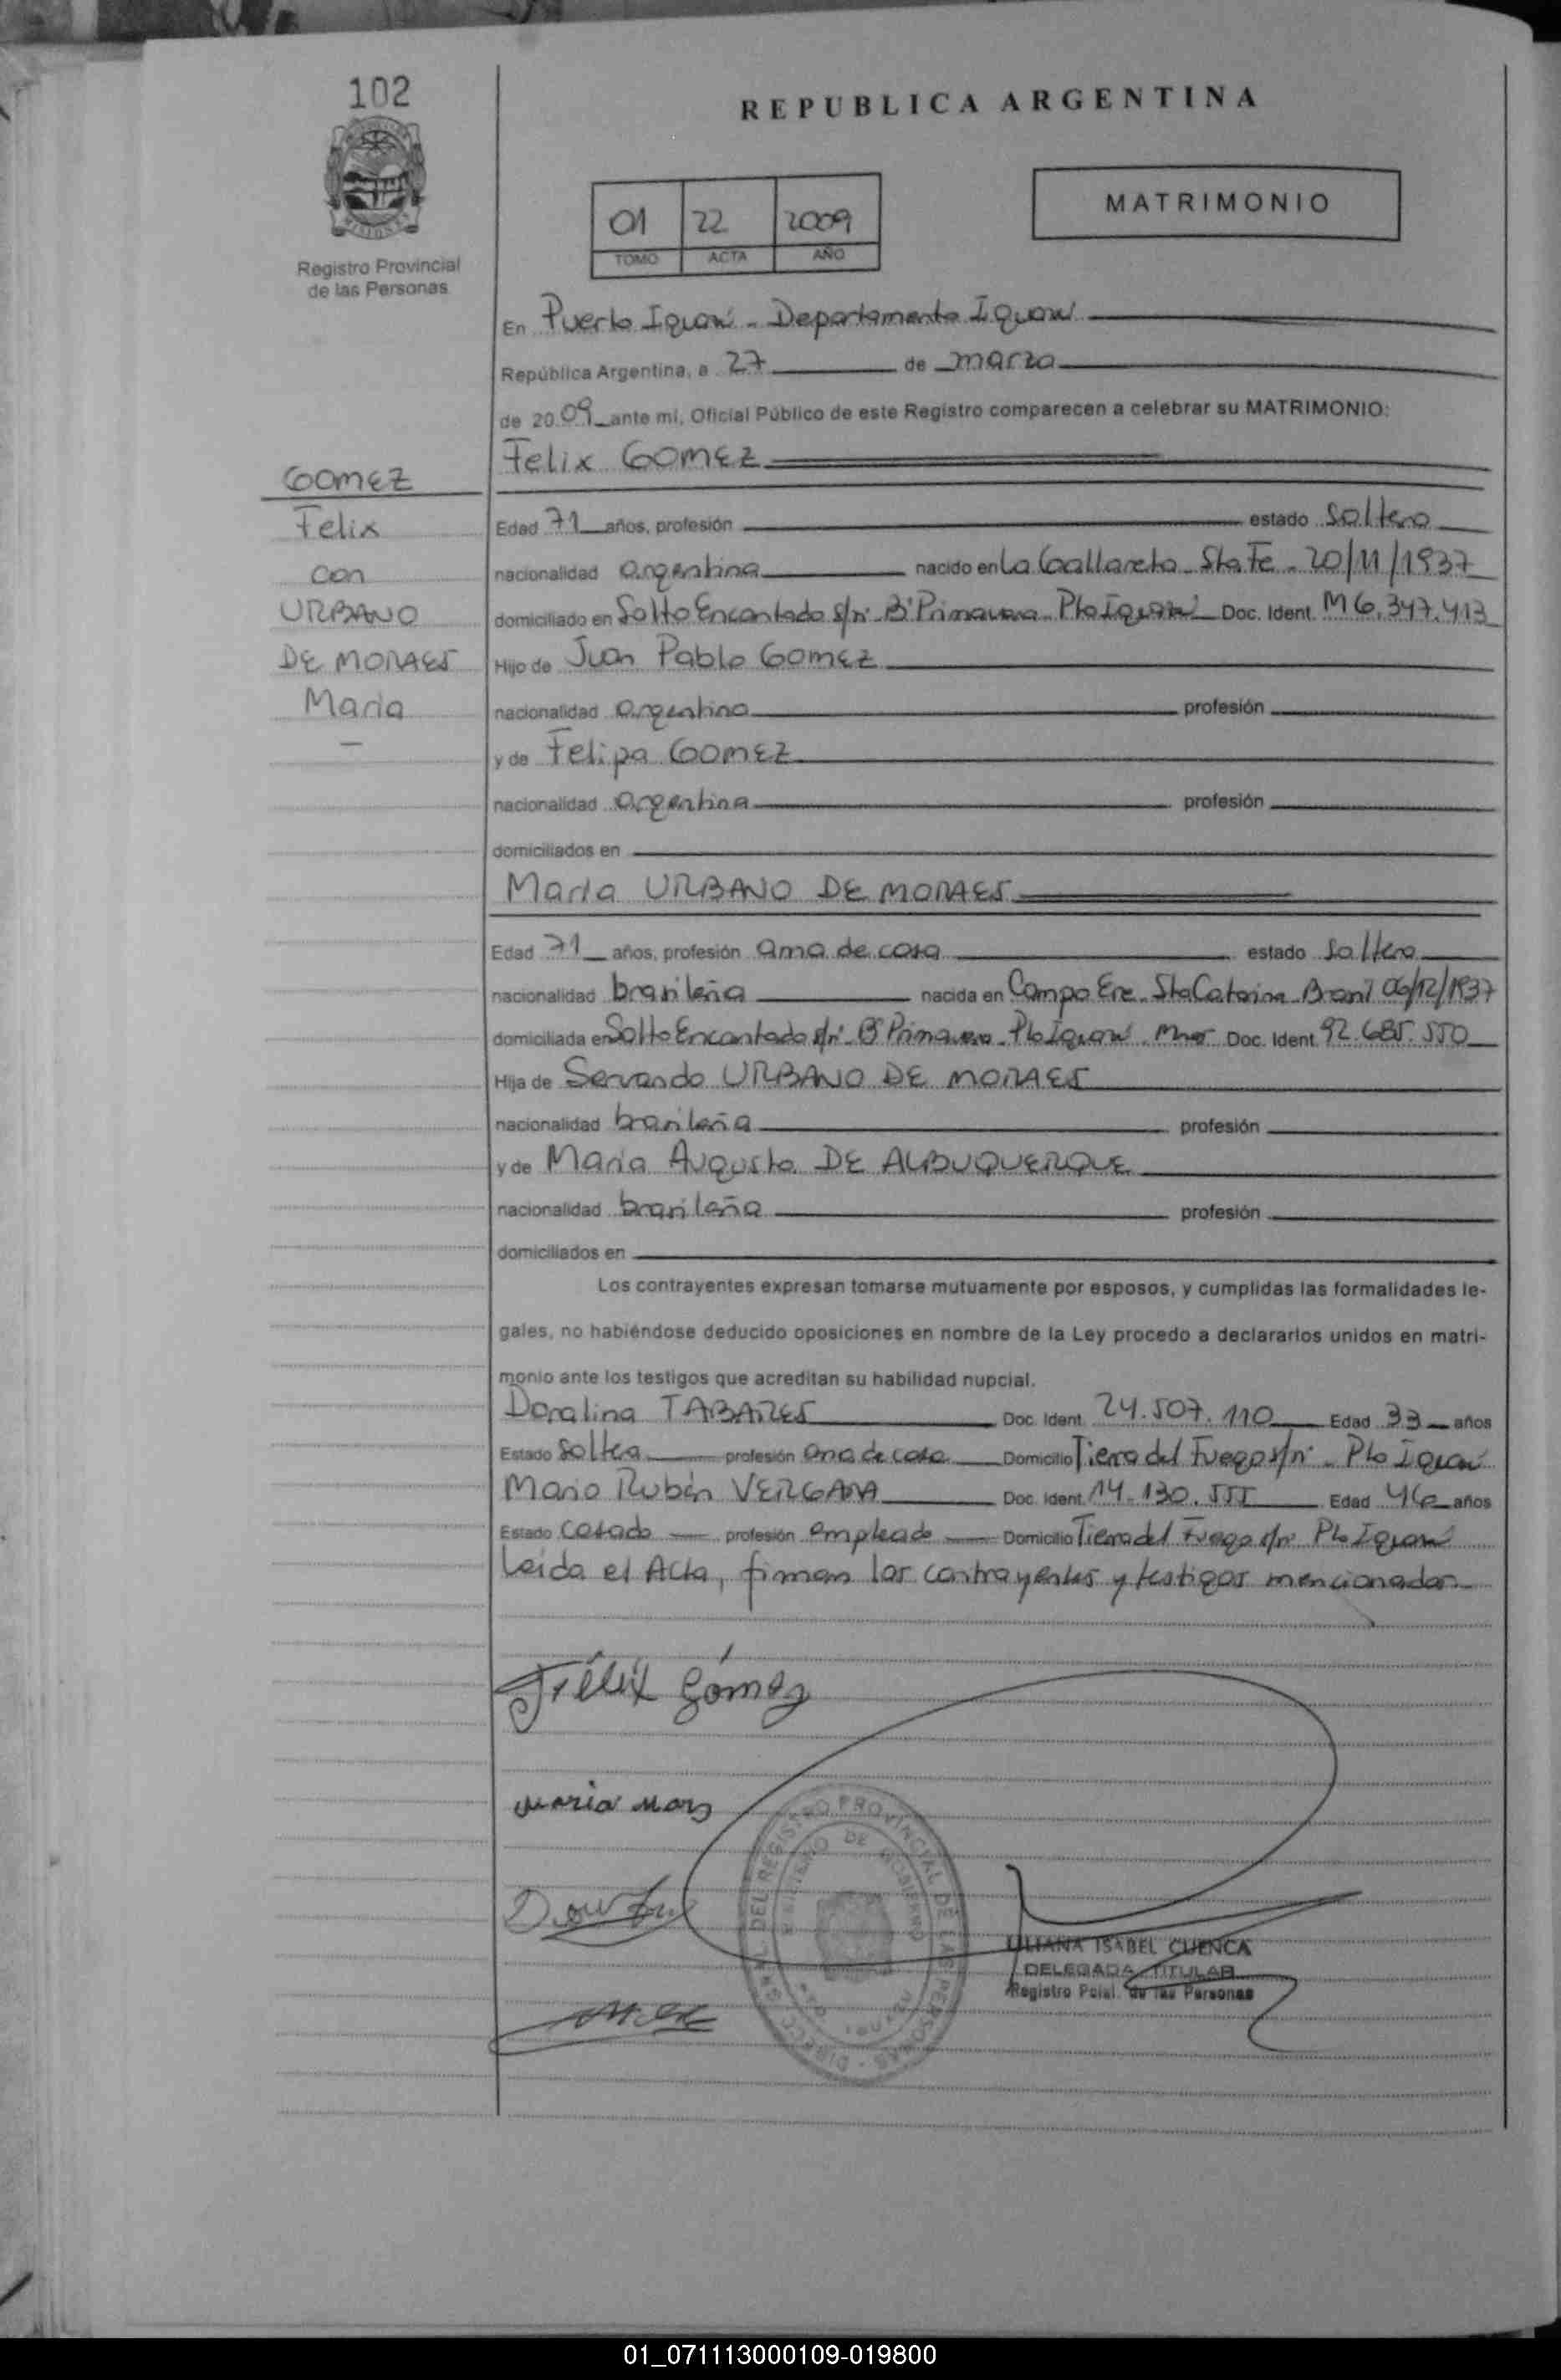 102
REPUBLICA ARGENTINA
MATRIMONIO
01 22 2009
TOMO ACTA AÑO
MISIONES
Registro Provincial
de las Personas
En Puerto Iguazú - Departamento Iguazú
República Argentina, a 27 de marzo
de 2009 ante mi, Oficial Público de este Registro comparecen a celebrar su MATRIMONIO:
Felix GOMEZ
GOMEZ
Felix
con
URBANO
DE MORAES
Maria
Edad 71 años, profesión estado soltero
nacionalidad argentina nacido en La Gallareta - Sta Fe - 20/11/1937
domiciliado en Salto Encantado s/nº - Bº Primavera - Pto Iguazú Doc. Ident. M 6.347.413
Hijo de Juan Pablo GOMEZ
nacionalidad argentina profesión
y de Felipa GOMEZ
nacionalidad argentina profesión
domiciliados en
Maria URBANO DE MORAES
Edad 71 años, profesión ama de casa estado soltera
nacionalidad brasileña nacida en Campo Ere - Sta Catarina - Brasil 06/12/1937
domiciliada en Salto Encantado s/nº - Bº Primavera - Pto Iguazú - Mnes Doc. Ident. 92.685.550
Hija de Servando URBANO DE MORAES
nacionalidad brasileña profesión
y de Maria Augusta DE ALBUQUERQUE
nacionalidad brasileña profesión
domiciliados en
Los contrayentes expresan tomarse mutuamente por esposos, y cumplidas las formalidades le-
gales, no habiéndose deducido oposiciones en nombre de la Ley procedo a declararlos unidos en matri-
monio ante los testigos que acreditan su habilidad nupcial.
Doralina TABARES Doc. Ident. 24.507.110 Edad 33 años
Estado soltera profesión ama de casa Domicilio Tierra del Fuego s/nº - Pto Iguazú
Mario Rubén VERGARA Doc. Ident. 14.130.555 Edad 46 años
Estado casado profesión empleado Domicilio Tierra del Fuego s/nº Pto Iguazú
Leida el Acta, firman los contrayentes y testigos mencionados
Félix Gómez
maria
DIRECC. GRAL. DEL REGISTRO PROVINCIAL DE LAS PERSONAS
MINISTERIO DE GOBIERNO
LILIANA ISABEL CUENCA
DELEGADA TITULAR
Registro Pcial. de las Personas
01_071113000109-019800